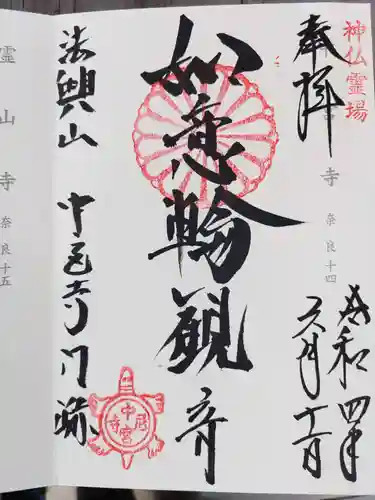 神仏霊場
奉拝
寺 奈良十四
令和四年
六月十一日
如意輪觀音
法興山 中宮寺門跡
中宮尼寺
霊山寺 奈良十五